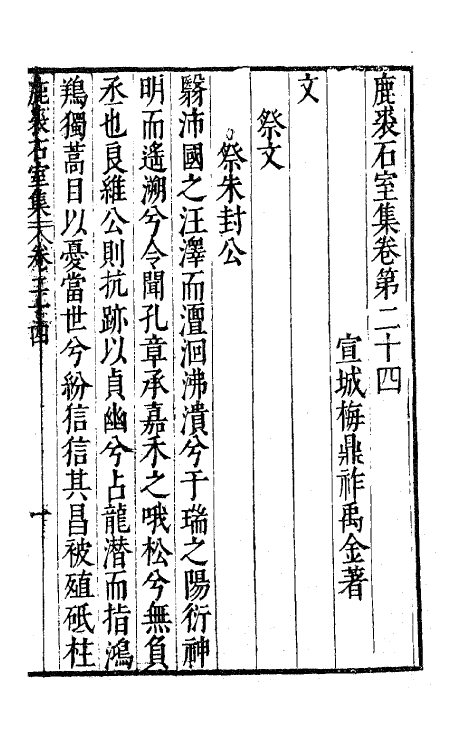 鹿裘石室集卷第二十四
宣城梅鼎祚禹金著
文
祭文
祭朱封公
翳沛國之汪澤而澶洄沸潰兮于瑞之陽衍神
明而遙溯兮令聞孔章承嘉禾之哦松兮無負
丞也良維公則抗跡以貞幽兮占龍潛而指鴻
鵷獨蒿目以憂當世兮紛信信其昌被殖砥柱
鹿裘石室集
卷二十四
一